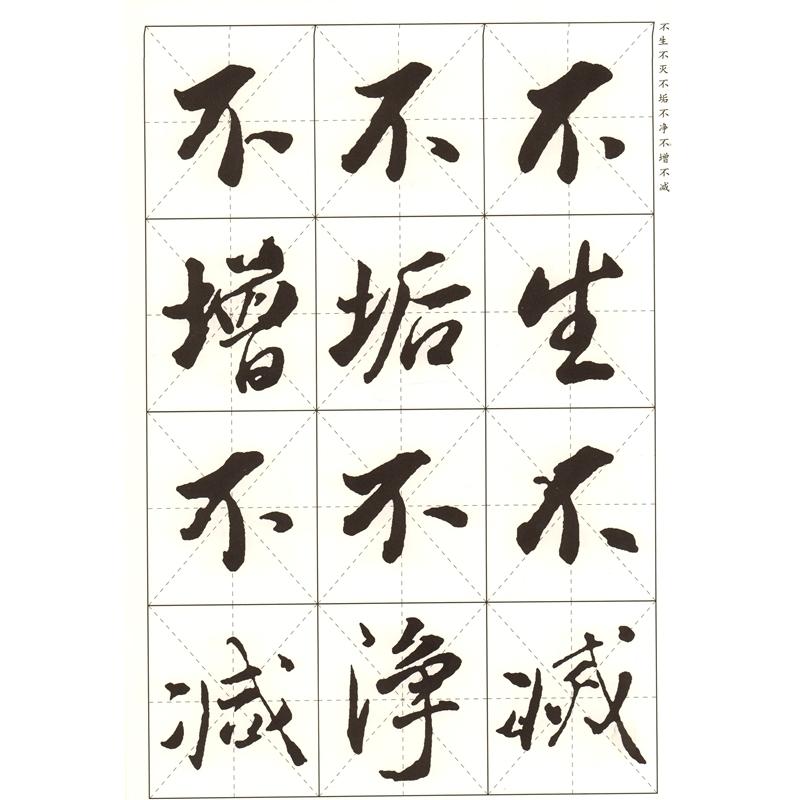 不生不灭不垢不净不增不减
不生不滅
不垢不淨
不增不減